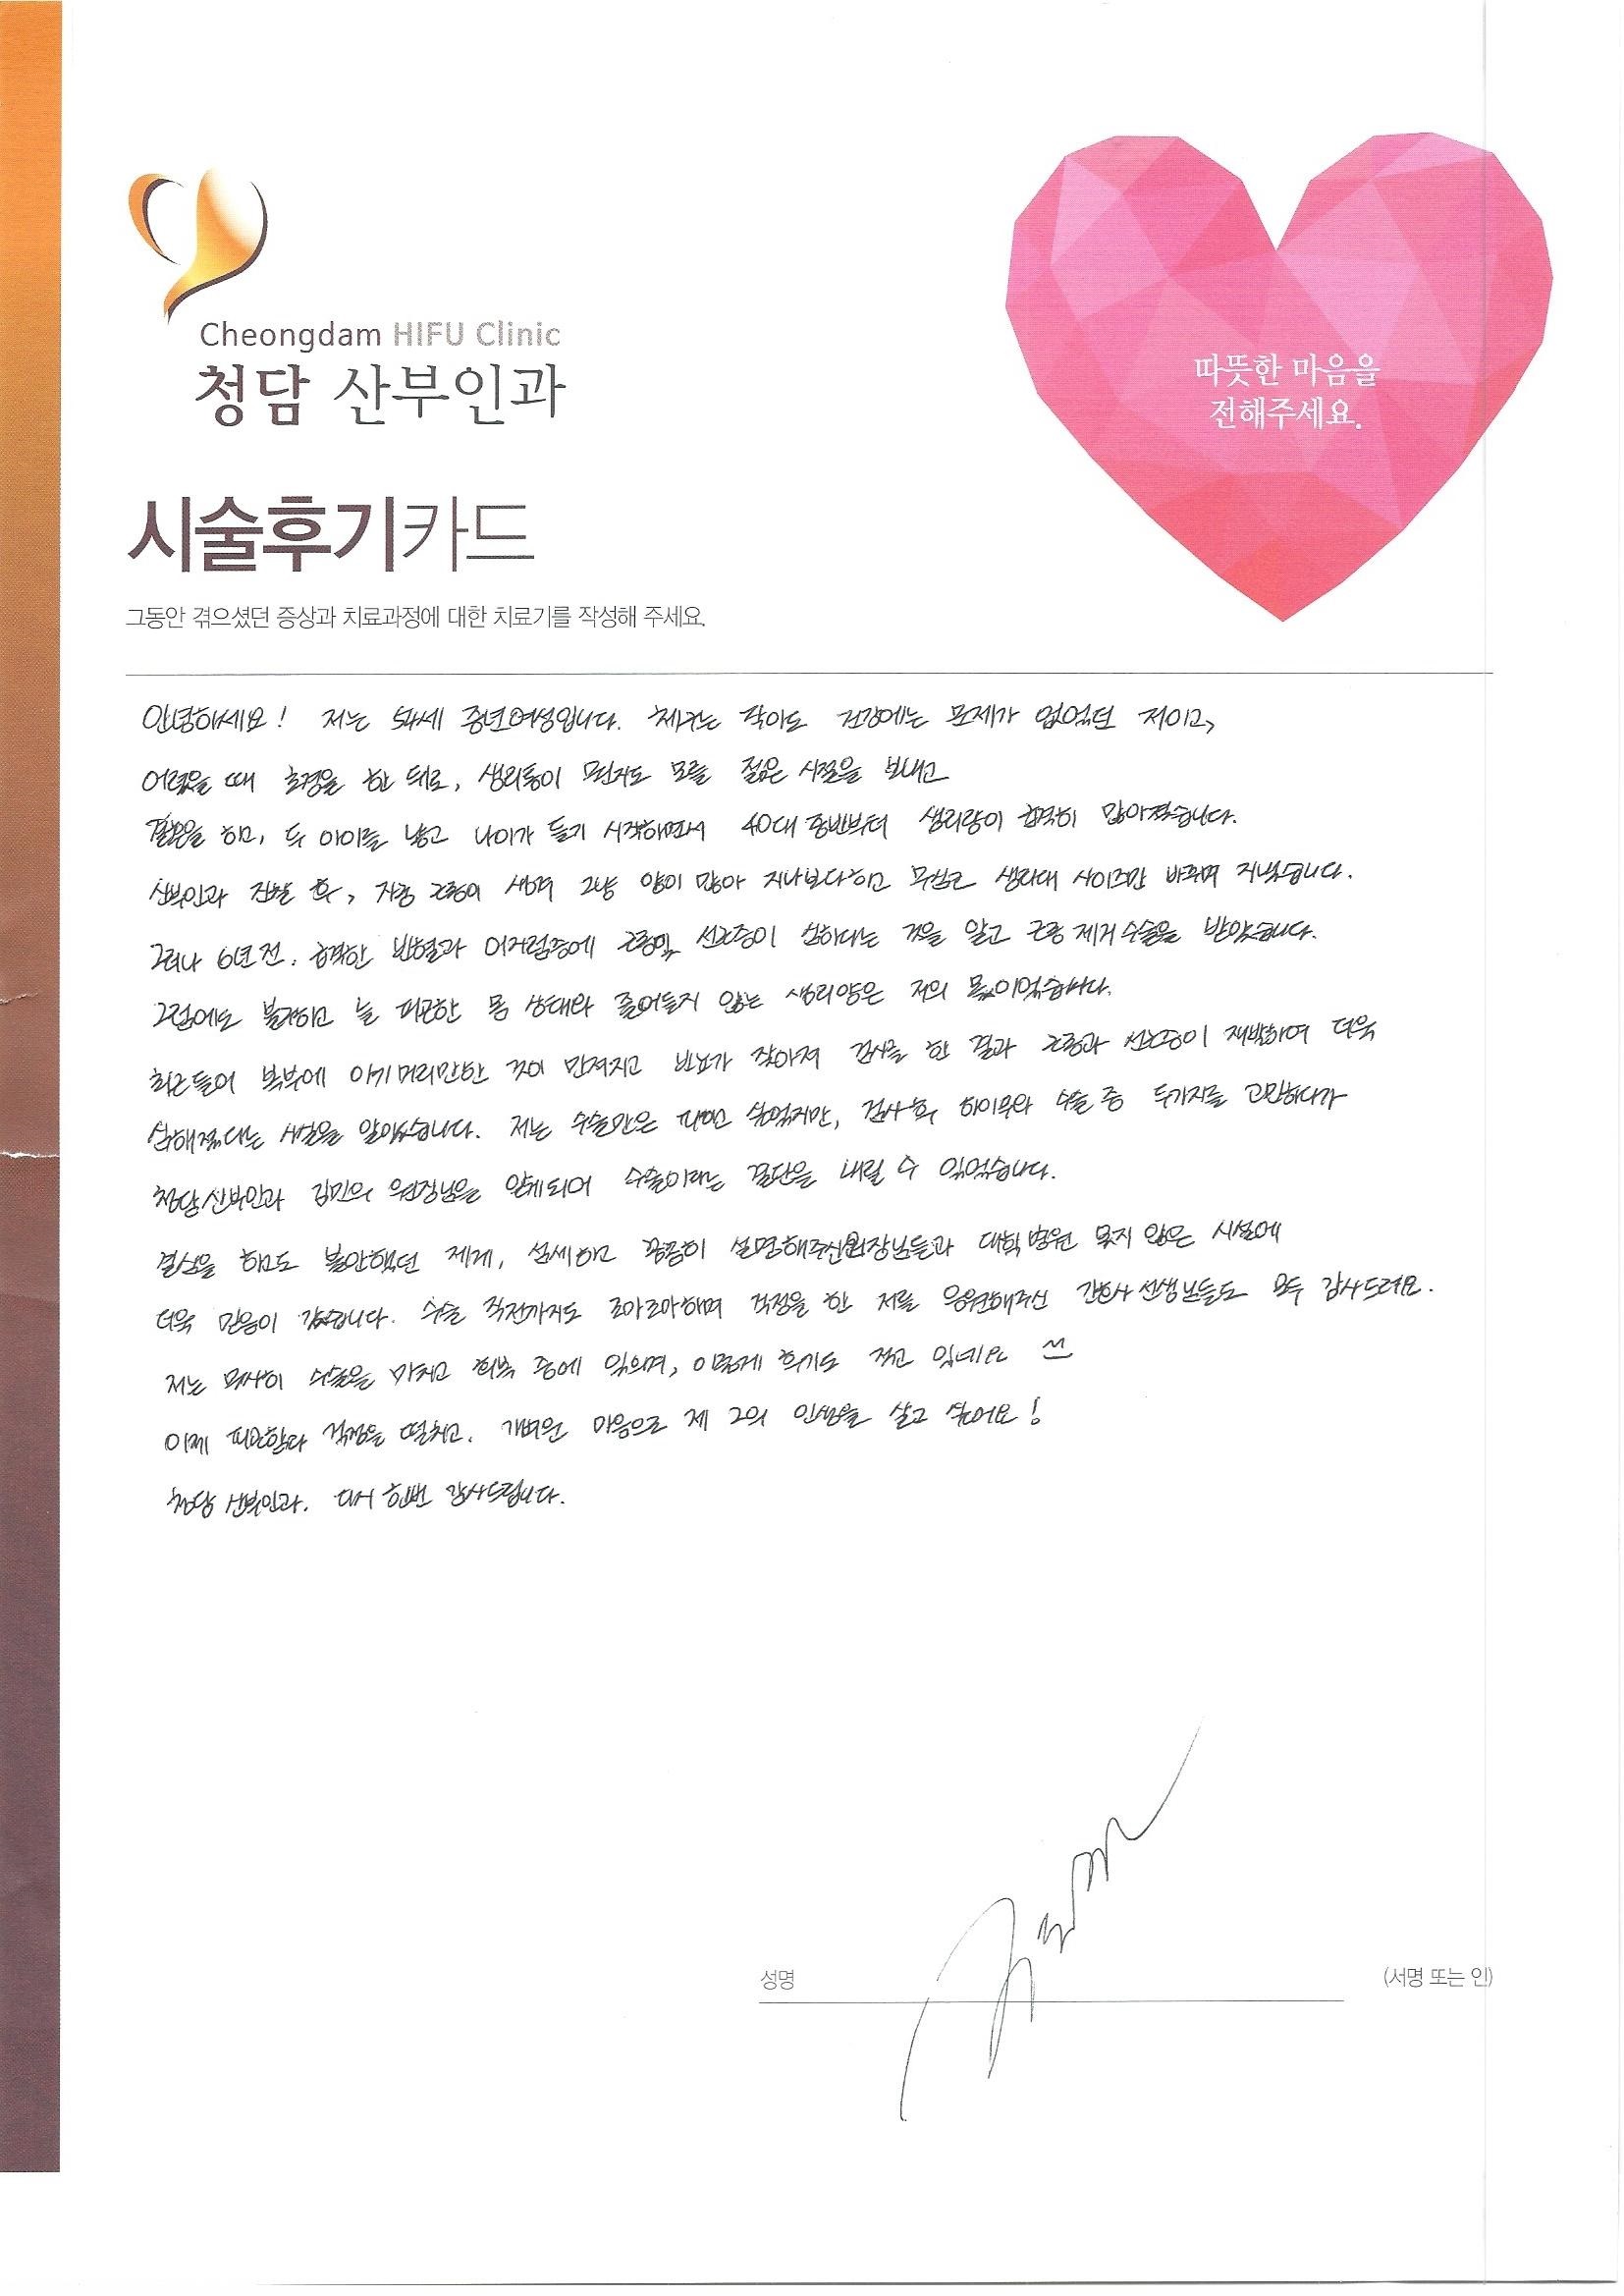 Cheongdam HIFU Clinic
청담 산부인과
따뜻한 마음을
전해주세요.
시술후기카드
그동안 겪으셨던 증상과 치료과정에 대한 치료기를 작성해 주세요.
안녕하세요! 저는 54세 중년여성입니다. 체구는 작아도 건강에는 문제가 없었던 저이고,
어렸을 때 초경을 한 뒤로, 생리통이 뭔지도 모를 젊은 시절을 보내고
결혼을 하고, 두 아이를 낳고 나이가 들기 시작하면서 40대 중반부터 생리량이 급격히 많아졌습니다.
산부인과 진찰 후, 자궁 근종이 생겨 그냥 양이 많아 지나보다하고 무심코 생리대 사이즈만 바꾸며 지냈습니다.
그러나 6년 전, 급격한 빈혈과 어지럼증에 근종및 선근증이 심하다는 것을 알고 근종 제거 수술을 받았습니다.
그럼에도 불구하고 늘 피곤한 몸 상태와 줄어들지 않는 생리양은 저의 몫이었습니다.
최근들어 복부에 아기 머리만한 것이 만져지고 빈뇨가 잦아져 검사를 한 결과 근종과 선근증이 재발하여 더욱
심해졌다는 사실을 알았습니다. 저는 수술만은 피하고 싶었지만, 검사 후 하이푸와 수술 중 두가지를 고민하다가
청담산부인과 김민우 원장님을 알게되어 수술이라는 결단을 내릴 수 있었습니다.
결심을 하고도 불안했던 제게, 섬세하고 꼼꼼히 설명해주신 원장님들과 대학병원 못지 않은 시설에
더욱 믿음이 갔습니다. 수술 직전까지도 조마조마하며 걱정을 한 저를 응원해주신 간호사 선생님들도 모두 감사드려요.
저는 무사히 수술을 마치고 회복 중에 있으며, 이렇게 후기도 적고 있네요 ^^
이제 피곤함과 걱정을 떨치고, 개벼운 마음으로 제 2의 인생을 살고 싶어요!
청담 산부인과, 다시 한번 감사드립니다.
성명
(서명 또는 인)